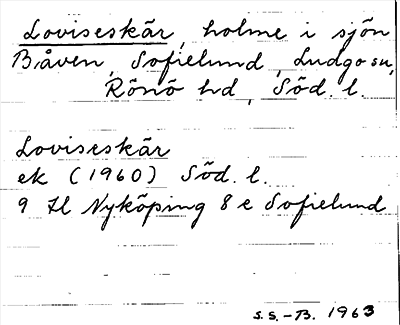 Loviseskär, holme i sjön
Båven, Sofielund, Ludgo sn,
Rönö hd, Söd. l.
Loviseskär
ek (1960) Söd. l.
9 Il Nyköping 8 e Sofielund
S.S.-B. 1963